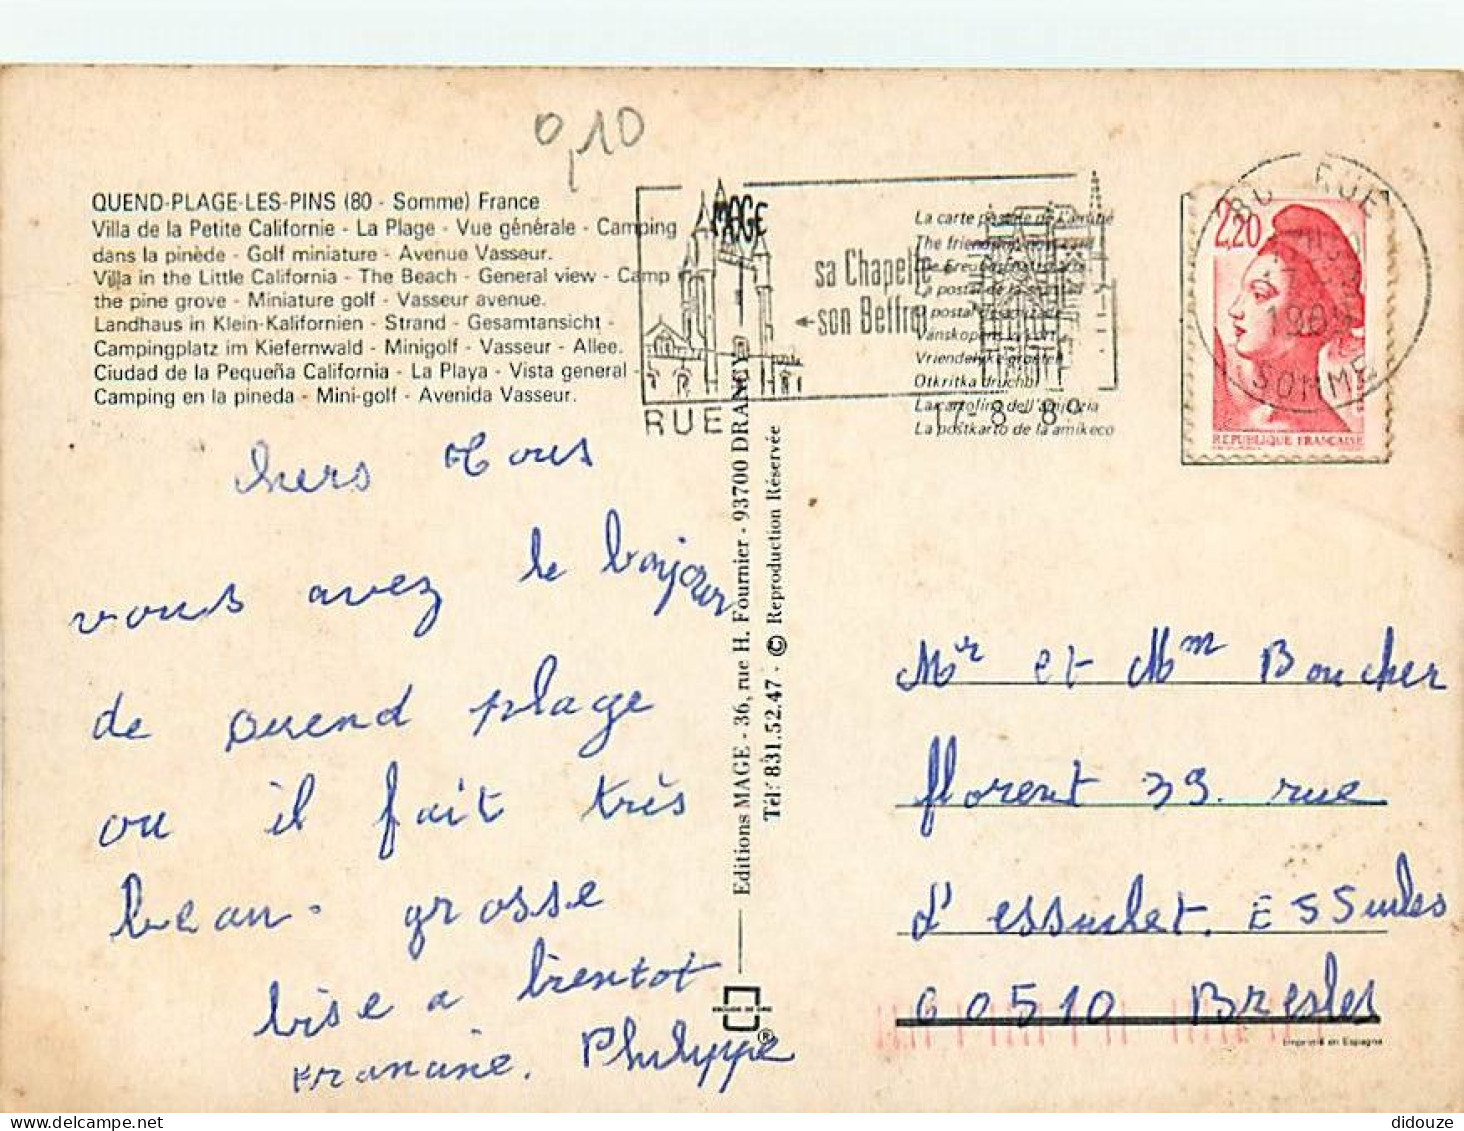 0,10
QUEND-PLAGE-LES-PINS (80 - Somme) France
Villa de la Petite Californie - La Plage - Vue générale - Camping
dans la pinède - Golf miniature - Avenue Vasseur.
Villa in the Little California - The Beach - General view - Camp
the pine grove - Miniature golf - Vasseur avenue.
Landhaus in Klein-Kalifornien - Strand - Gesamtansicht -
Campingplatz im Kiefernwald - Minigolf - Vasseur - Allee.
Ciudad de la Pequeña California - La Playa - Vista general -
Camping en la pineda - Mini-golf - Avenida Vasseur.
MAGE
sa Chapelle
son Beffroi
RUE
17-8-89
La carte postale de l'amitié
The friendship
La postal de la
Vanskopens
Vriendelijke groeten
Otkritka druchbi
La cartolina dell'amicizia
La postkarto de la amikeco
80 RUE
SOMME
2,20
REPUBLIQUE FRANCAISE
hers Tous
vous avez le bonjour
de Quend plage
ou il fait très
beau. grosse
bise a bientot
Francine. Philippe
Editions MAGE - 36, rue H. Fournier - 93700 DRANCY
Tél: 831.52.47 - © Reproduction Réservée
®
Mr et Mm Boucher
florent 39. rue
d'essuchet. ESSuiles
60510 Bresles
Imprimé en Espagne
didouze